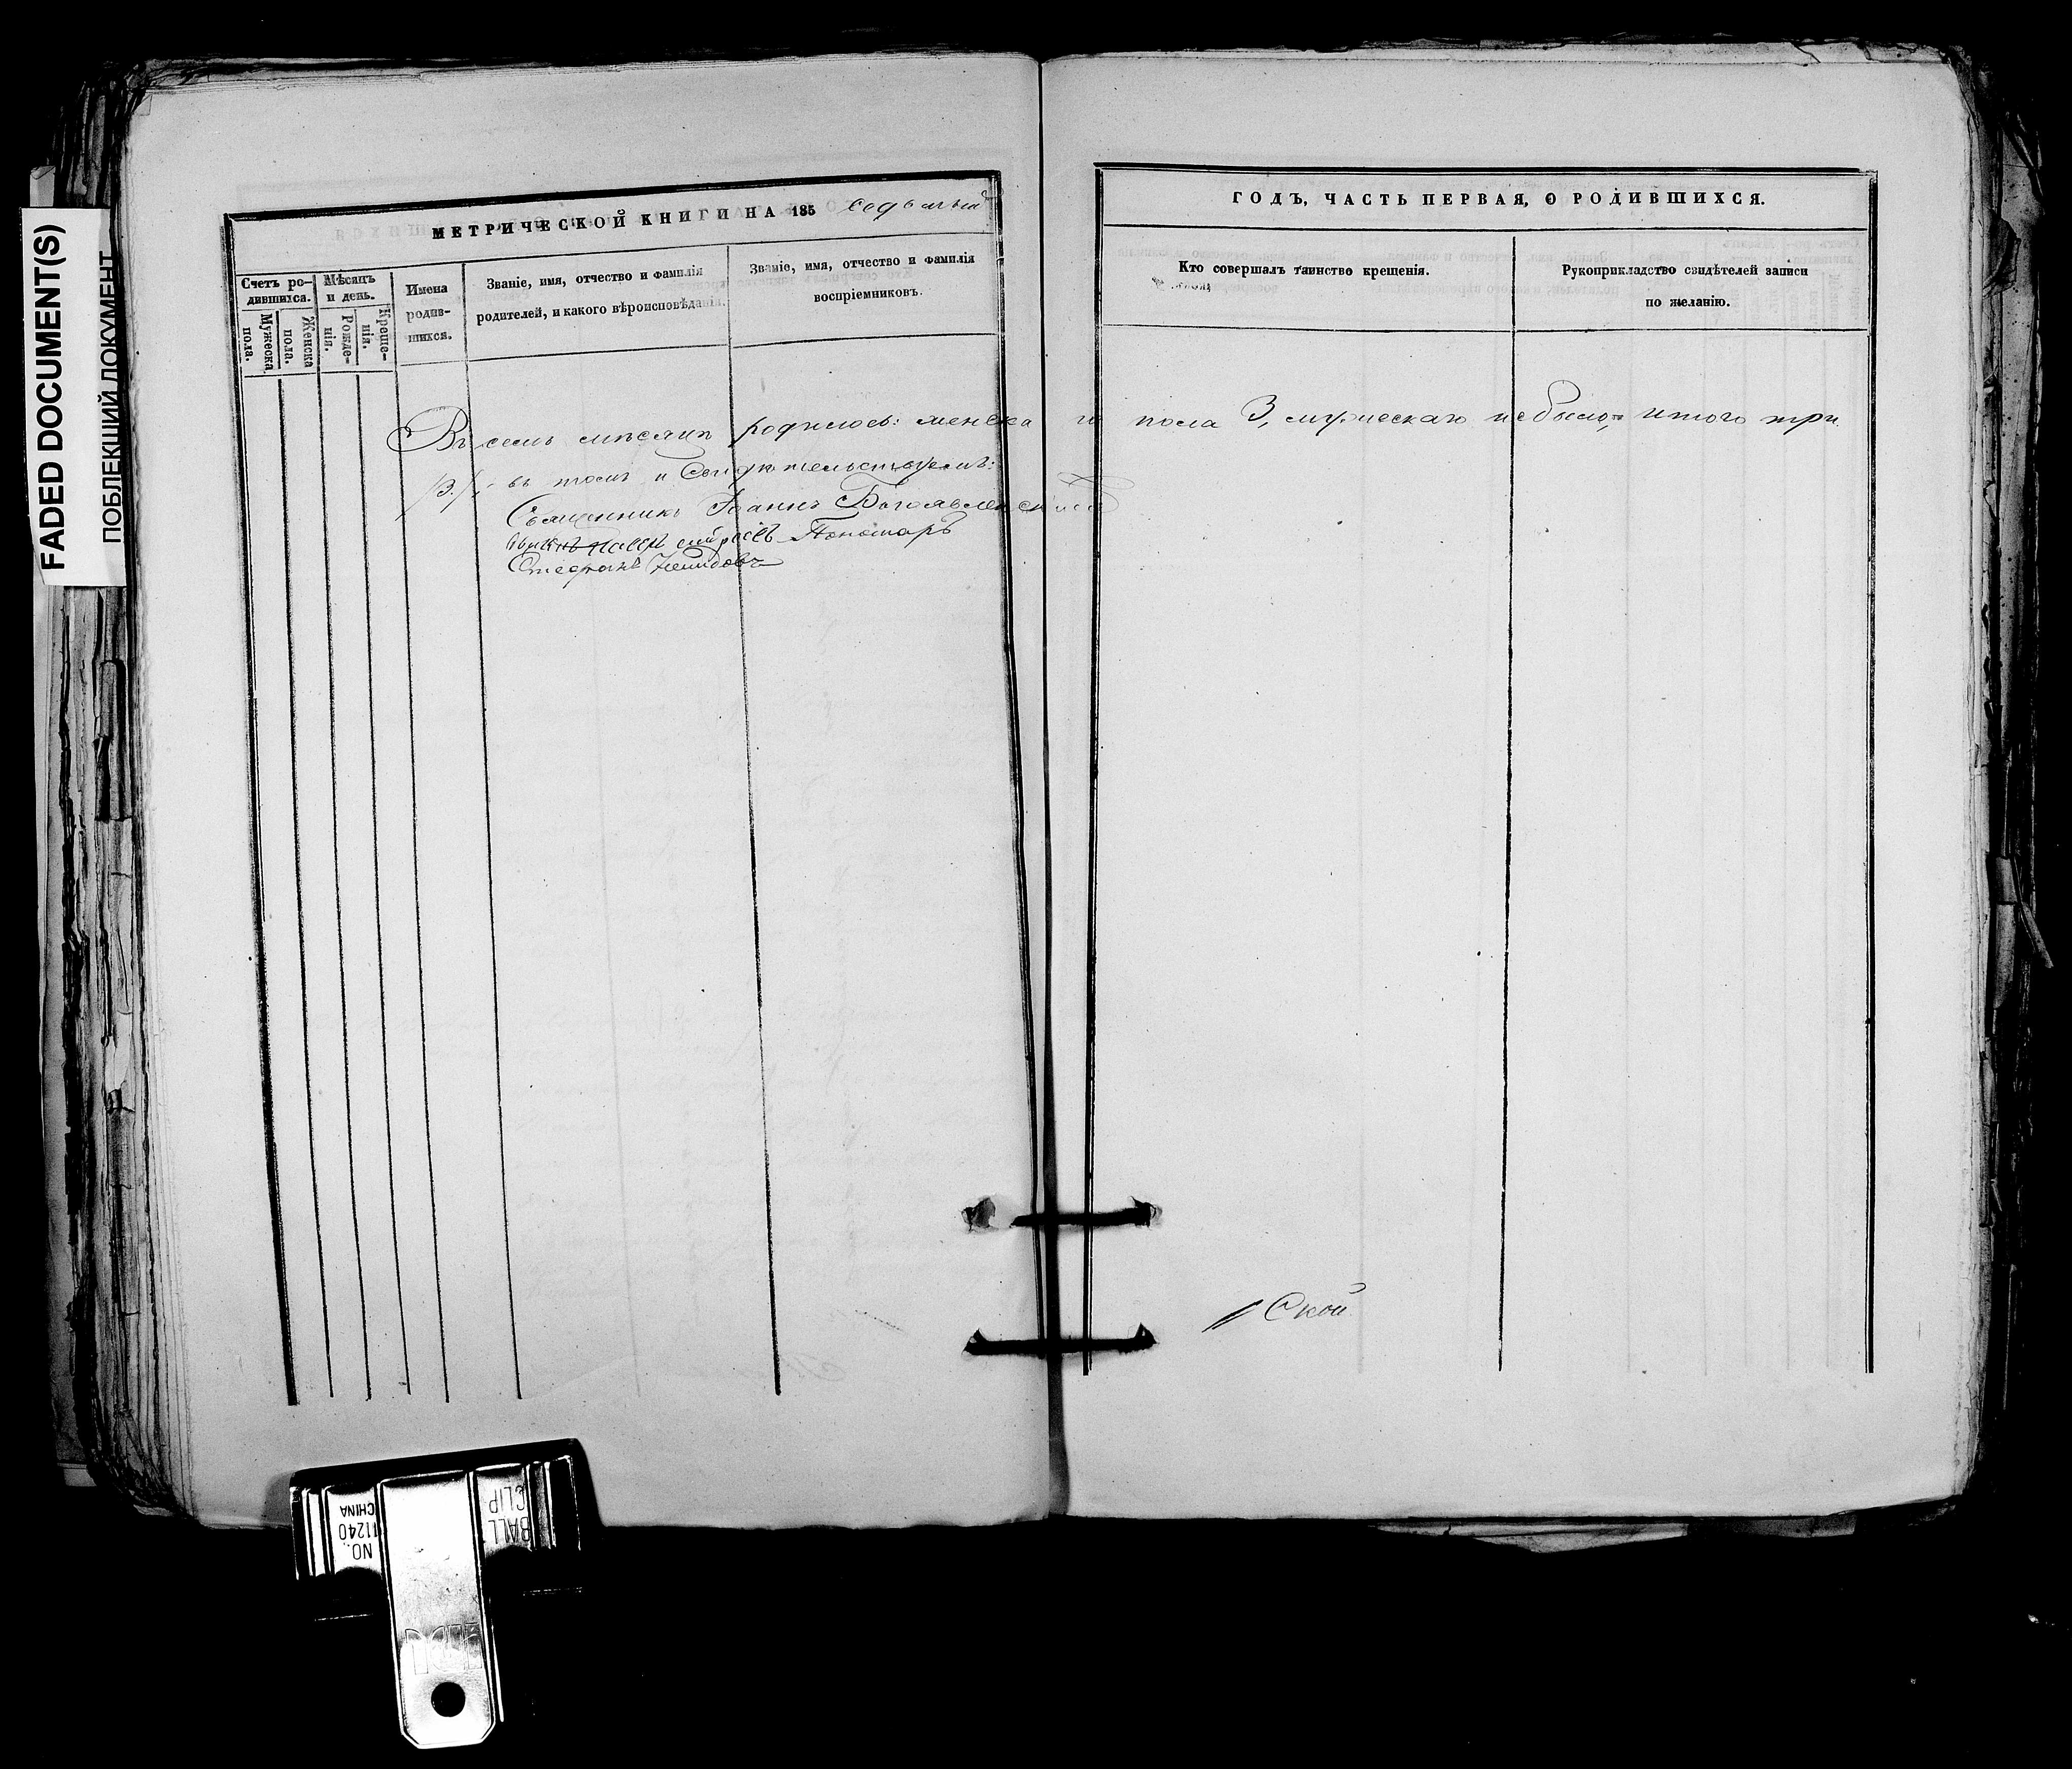 FADED DOCUMENT(S)
ПОБЛЕКШИЙ ДОКУМЕНТ
МЕТРИЧЕСКОЙ КНИГИ НА 185 седьмый
Счетъ ро-
дившихся.
Мужеска
пола.
Женска
пола.
Мѣсяцъ
и день.
Рожде-
нія.
Креще-
нія.
Имена
родив-
шихся.
Званіе, имя, отчество и фамилія
родителей, и какого вѣроисповѣданія.
Званіе, имя, отчество и фамилія
воспріемниковъ.
ГОДЪ, ЧАСТЬ ПЕРВАЯ, О РОДИВШИХСЯ.
Кто совершалъ таинство крещенія.
Рукоприкладство свидѣтелей записи
по желанію.
Въ семъ мѣсяцѣ родилось: женскаго пола 3, мужескаго небыло, итого три
/3./ въ томъ и Свидѣтельствуемъ:
Священникъ Іоаннъ Богоявленскій
Пономарь
Стефанъ
Ской
NO. 11240
CHINA
BALL
CLIP